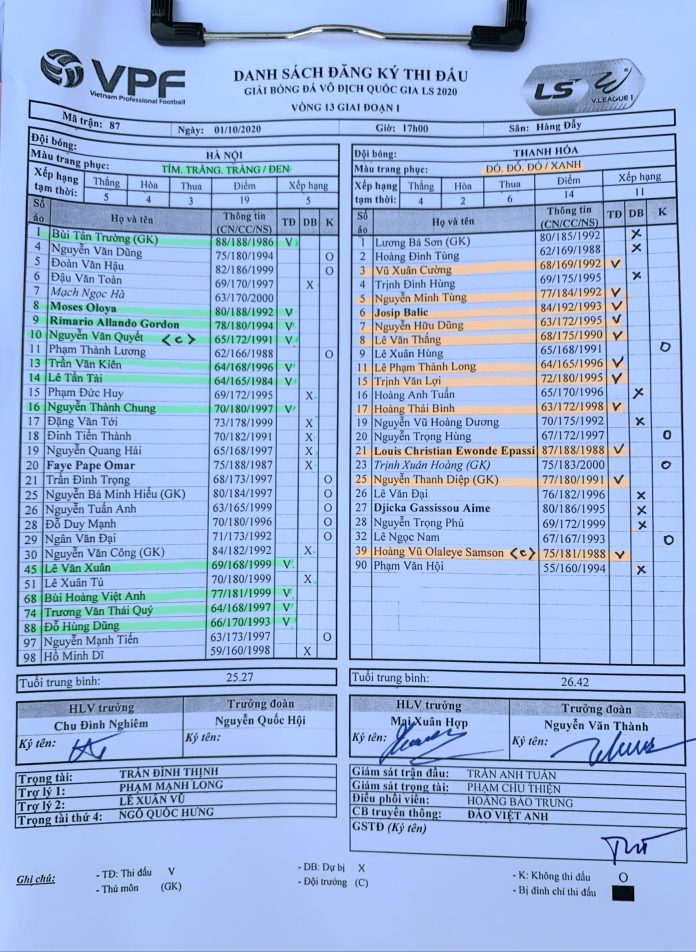 VPF
Vietnam Professional Football
DANH SÁCH ĐĂNG KÝ THI ĐẤU
GIẢI BÓNG ĐÁ VÔ ĐỊCH QUỐC GIA LS 2020
VÒNG 13 GIAI ĐOẠN I
LS
V.LEAGUE 1
Mã trận: 87 Ngày: 01/10/2020 Giờ: 17h00 Sân: Hàng Đẫy
Đội bóng: HÀ NỘI
Màu trang phục: TÍM. TRẮNG. TRẮNG / ĐEN
Xếp hạng tạm thời: Thắng Hòa Thua Điểm Xếp hạng
5 4 3 19 5
Số áo Họ và tên Thông tin (CN/CC/NS) TĐ DB K
1 Bùi Tấn Trường (GK) 88/188/1986 V
4 Nguyễn Văn Dũng 75/180/1994 O
5 Đoàn Văn Hậu 82/186/1999 O
6 Đậu Văn Toàn 69/170/1997 X
7 Mạch Ngọc Hà 63/170/2000
8 Moses Oloya 80/188/1992 V
9 Rimario Allando Gordon 78/180/1994 V
10 Nguyễn Văn Quyết <c> 65/172/1991 V
11 Phạm Thành Lương 62/166/1988 O
13 Trần Văn Kiên 64/168/1996 V
14 Lê Tấn Tài 64/165/1984 V
15 Phạm Đức Huy 69/172/1995 X
16 Nguyễn Thành Chung 70/180/1997 V
17 Đặng Văn Tới 73/178/1999 X
18 Đinh Tiến Thành 70/182/1991 X
19 Nguyễn Quang Hải 65/168/1997 X
20 Faye Pape Omar 75/188/1987 X
21 Trần Đình Trọng 68/173/1997 O
25 Nguyễn Bá Minh Hiếu (GK) 80/184/1997 O
26 Nguyễn Tuấn Anh 63/165/1999 O
28 Đỗ Duy Mạnh 70/180/1996 O
29 Ngân Văn Đại 71/173/1992 O
30 Nguyễn Văn Công (GK) 84/182/1992 X
45 Lê Văn Xuân 69/168/1999 V
51 Lê Xuân Tú 70/180/1999 X
68 Bùi Hoàng Việt Anh 77/181/1999 V
74 Trương Văn Thái Quý 64/168/1997 V
88 Đỗ Hùng Dũng 66/170/1993 V
97 Nguyễn Mạnh Tiến 63/173/1997 O
98 Hồ Minh Dĩ 59/160/1998 X
Tuổi trung bình: 25.27
HLV trưởng Trưởng đoàn
Chu Đình Nghiêm Nguyễn Quốc Hội
Ký tên: Ký tên:
Trọng tài: TRẦN ĐÌNH THỊNH
Trợ lý 1: PHẠM MẠNH LONG
Trợ lý 2: LÊ XUÂN VŨ
Trọng tài thứ 4: NGÔ QUỐC HƯNG
Đội bóng: THANH HÓA
Màu trang phục: ĐỎ. ĐỎ. ĐỎ / XANH
Xếp hạng tạm thời: Thắng Hòa Thua Điểm Xếp hạng
4 2 6 14 11
Số áo Họ và tên Thông tin (CN/CC/NS) TĐ DB K
1 Lương Bá Sơn (GK) 80/185/1992 X
2 Hoàng Đình Tùng 62/169/1988 X
3 Vũ Xuân Cường 68/169/1992 V
4 Trịnh Đình Hùng 69/175/1995 X
5 Nguyễn Minh Tùng 77/184/1992 V
6 Josip Balic 84/192/1993 V
7 Nguyễn Hữu Dũng 63/172/1995 V
8 Lê Văn Thắng 68/175/1990 V
9 Lê Xuân Hùng 65/168/1991 O
11 Lê Phạm Thành Long 64/165/1996 V
15 Trịnh Văn Lợi 72/180/1995 V
16 Hoàng Anh Tuấn 65/170/1996 X
17 Hoàng Thái Bình 63/172/1998 V
19 Nguyễn Vũ Hoàng Dương 70/175/1992 X
20 Nguyễn Trọng Hùng 67/172/1997 O
21 Louis Christian Ewonde Epassi 87/188/1988 V
23 Trịnh Xuân Hoàng (GK) 75/183/2000 O
25 Nguyễn Thanh Diệp (GK) 77/180/1991 V
26 Lê Văn Đại 76/182/1996 X
27 Djicka Gassissou Aime 80/186/1995 X
28 Nguyễn Trọng Phú 69/172/1999 X
32 Lê Ngọc Nam 67/167/1993 O
39 Hoàng Vũ Olaleye Samson <c> 75/181/1988 V
90 Phạm Văn Hội 55/160/1994 X
Tuổi trung bình: 26.42
HLV trưởng Trưởng đoàn
Mai Xuân Hợp Nguyễn Văn Thành
Ký tên: Ký tên:
Giám sát trận đấu: TRẦN ANH TUẤN
Giám sát trọng tài: PHẠM CHU THIỆN
Điều phối viên: HOÀNG BẢO TRUNG
CB truyền thông: ĐÀO VIỆT ANH
GSTĐ (Ký tên)
Ghi chú: - TĐ: Thi đấu V - DB: Dự bị X - K: Không thi đấu O
- Thủ môn (GK) - Đội trưởng (C) - Bị đình chỉ thi đấu